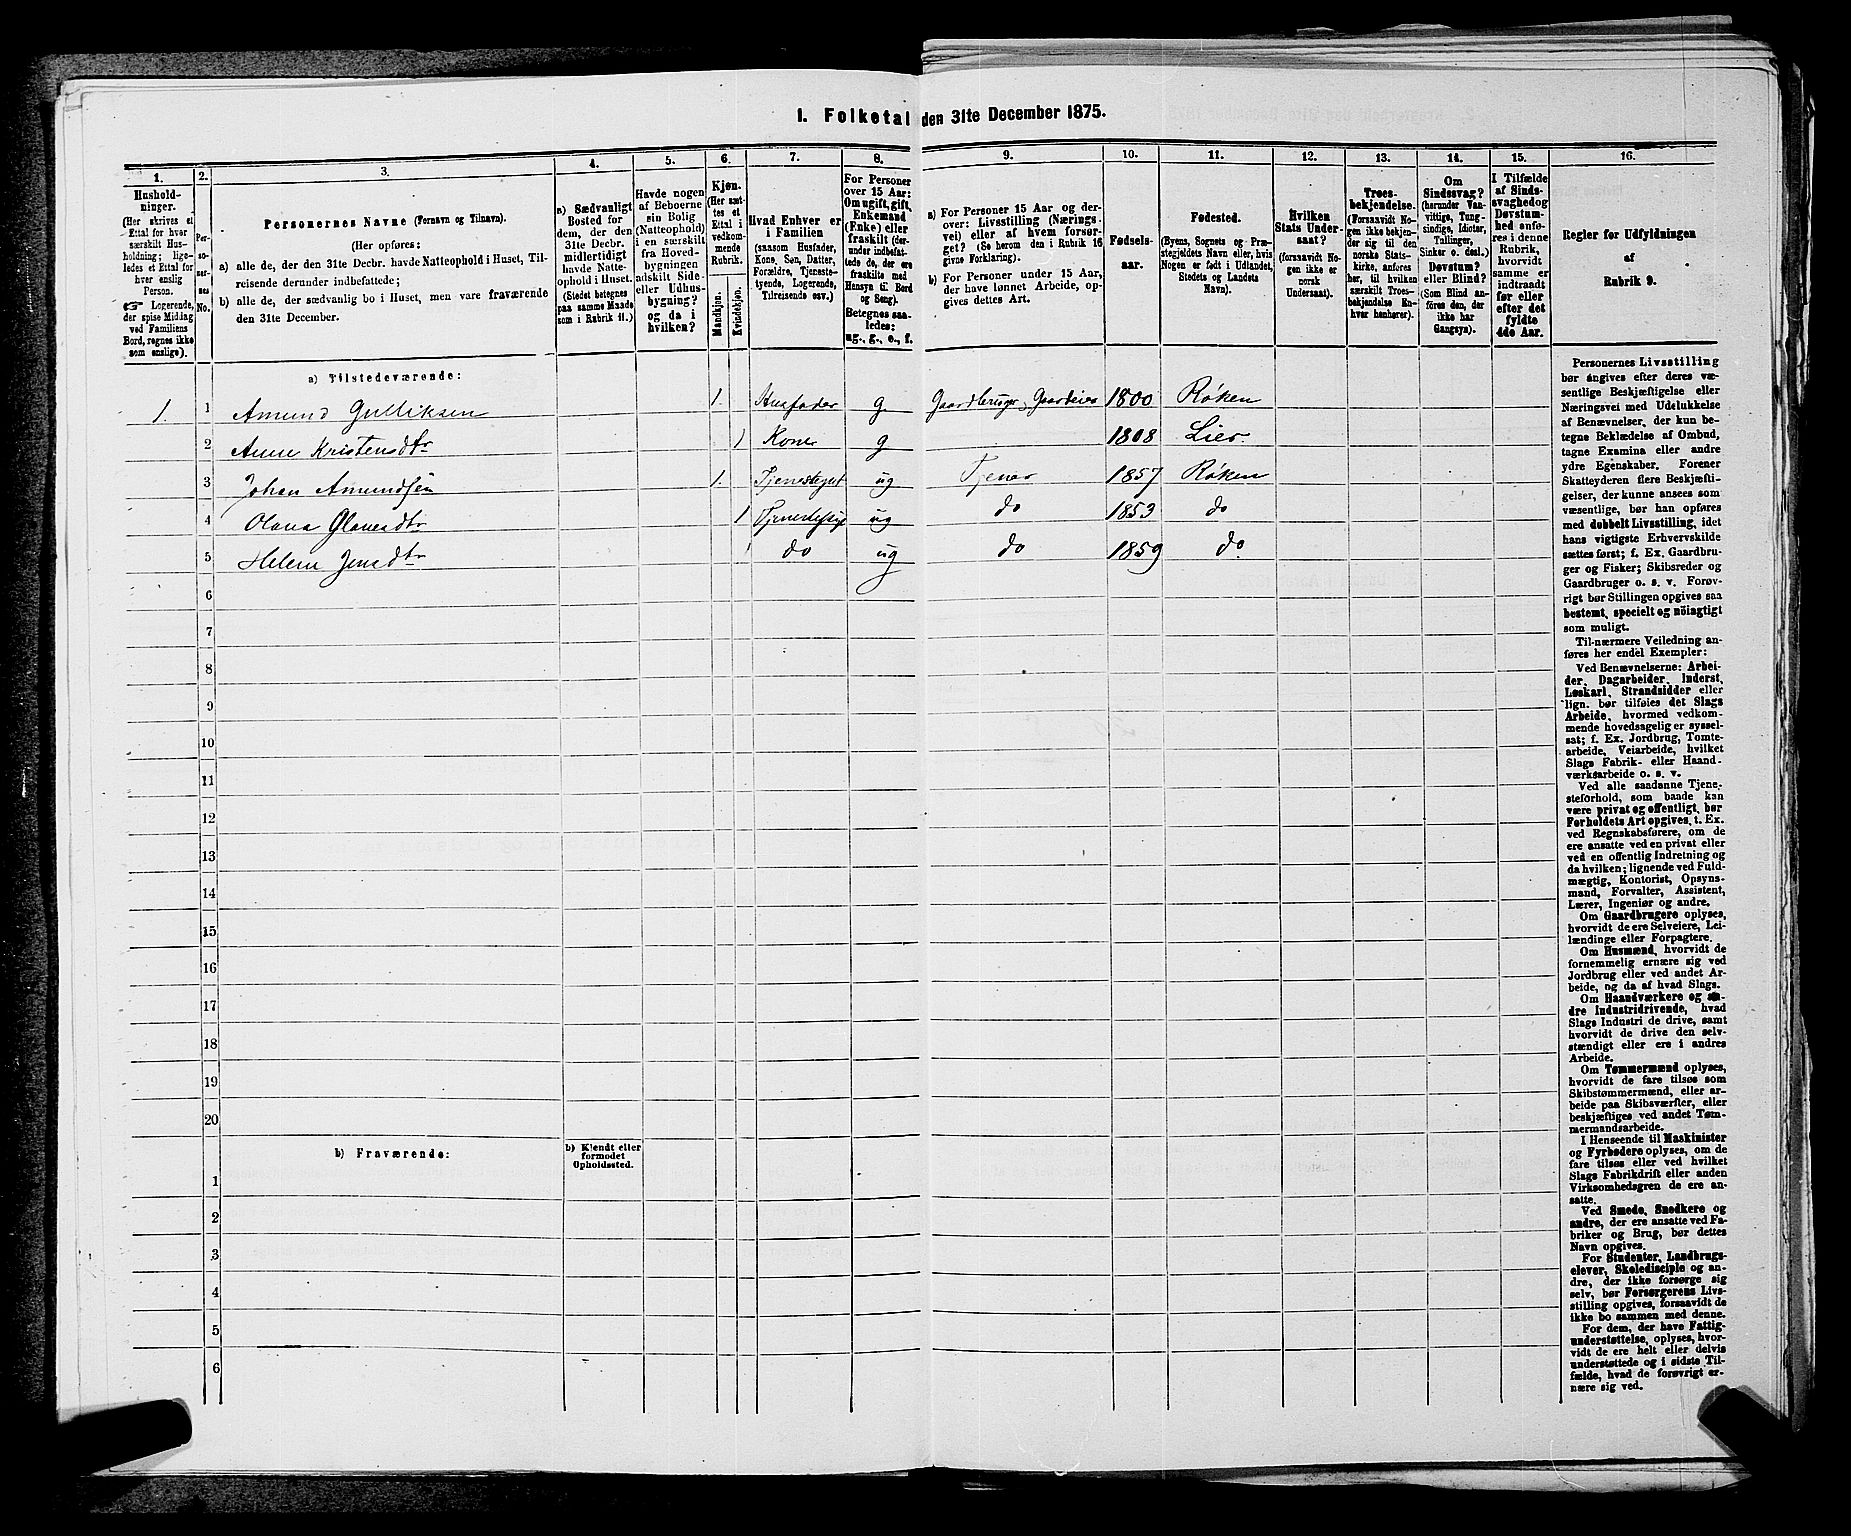 1. Folketal den 31te December 1875.
1.
2.
3.
4.
5.
6.
7.
8.
9.
10.
11.
12.
13.
14.
15.
16.
Hushold-
ninger.
(Her skrives et
Ettal for hver
særskilt Hus-
holdning; lige-
ledes et Ettal for
hver enslig
Person.
☞ Logerende,
der spise Middag
ved Familiens
Bord, regnes ikke
som enslige).
Per-
so-
ner-
nes
No.
Personernes Navne (Fornavn og Tilnavn).
(Her opføres:
a) alle de, der den 31te Decbr. havde Natteophold i Huset, Til-
reisende derunder indbefattede;
b) alle de, der sædvanlig bo i Huset, men vare fraværende
den 31te December.
a) Sædvanligt
Bosted for
dem, der den
31te Decbr.
midlertidigt
havde Natte-
ophold i Huset.
(Stedet betegnes
paa samme Maade
som i Rubrik 11.)
Havde nogen
af Beboerne
sin Bolig
(Natteophold)
i en særskilt
fra Hoved-
bygningen
adskilt Side-
eller Udhus-
bygning?
og da i
hvilken?
Kjøn.
(Her sæt-
tes et
Ettal i
vedkom-
mende
Rubrik.
Mandkjøn.
Kvindekjøn.
Hvad Enhver er
i Familien
(saasom Husfader,
Kone, Søn, Datter,
Forældre, Tjeneste-
tyende, Logerende,
Tilreisende osv.)
For Personer
over 15 Aar:
Om ugift, gift,
Enkemand
(Enke) eller
fraskilt (der-
under indbefat-
tede de, der ere
fraskilte med
Hensyn til Bord
og Seng).
Betegnes saa-
ledes:
ug., g., e., f.
a) For Personer 15 Aar og der-
over: Livsstilling (Nærings-
vei) eller af hvem forsør-
get? (Se herom den i Rubrik 16
givne Forklaring).
b) For Personer under 15 Aar,
der have lønnet Arbeide, op-
gives dettes Art.
Fødsels-
aar.
Fødested.
(Byens, Sognets og Præ-
stegjeldets Navn eller, hvis
Nogen er født i Udlandet,
Stedets og Landets
Navn).
Hvilken
Stats Under-
saat?
(forsaavidt No-
gen ikke er
norsk
Undersaat).
Troes-
bekjendelse.
(Forsaavidt No-
gen ikke bekjen-
der sig til den
norske Stats-
kirke, anføres
her, til hvilken
særskilt Troes-
bekjendelse En-
hver henhører).
Om
Sindssvag?
(herunder Van-
vittige, Tung-
sindige, Idioter,
Tullinger,
Sinker o. desl.)
Døvstum?
eller Blind?
(Som Blind an-
føres den, der
ikke har
Gangsyn).
I Tilfælde
af Sinds-
svaghed og
Døvstum-
hed anfø-
res i denne
Rubrik,
hvorvidt
samme er
indtraadt
før eller
efter det
fyldte
4de Aar.
Regler for Udfyldningen
af
Rubrik 9.
a) Tilstedeværende:
1. 1 Amund Gulliksen 1. Husfader g. Gaardbruger, Gaardeier 1800 Røken
2 Anne Kristensdtr 1 Kone g 1808 Lier
3 Johan Amundsen 1. Tjenestegut ug Tjener 1857 Røken
4 Olava 1 ug do 1853 do
5 Helene Jensdtr 1 do ug do 1859 do.
6
7
8
9
10
11
12
13
14
15
16
17
18
19
20
b) Fraværende:
b) Kjendt eller
formodet
Opholdssted.
1
2
3
4
5
6
Personernes Livsstilling
bør angives efter deres væ-
sentlige Beskjæftigelse eller
Næringsvei med Udelukkelse
af Benævnelser, der kun be-
tegne Beklædelse af Ombud,
tagne Examina eller andre
ydre Egenskaber. Forener
Skatteyderen flere Beskjæfti-
gelser, der kunne ansees som
væsentlige, bør han opføres
med dobbelt Livsstilling, idet
hans vigtigste Erhvervskilde
sættes først; f. Ex. Gaardbru-
ger og Fisker; Skibsreder og
Gaardbruger o. s. v. Forøv-
rigt bør Stillingen opgives saa
bestemt, specielt og nöiagtigt
som muligt.
Til nærmere Veiledning an-
føres her endel Exempler:
Ved Benævnelserne: Arbei-
der, Dagarbeider, Inderst,
Løskarl, Strandsidder eller
lign. bør tilføies det Slags
Arbeide, hvormed vedkom-
mende hovedsagelig er syssel-
sat; f. Ex. Jordbrug, Tomte-
arbeide, Veiarbeide, hvilket
Slags Fabrik- eller Haand-
værksarbeide o. s. v.
Ved alle saadanne Tjene-
steforhold, som baade kan
være privat og offentligt, bør
Forholdets Art opgives, t. Ex.
ved Regnskabsførere, om de
ere ansatte ved en privat eller
ved en offentlig Indretning og
da hvilken; lignende ved Fuld-
mægtig, Kontorist, Opsyns-
mand, Forvalter, Assistent,
Lærer, Ingeniør og andre.
Om Gaardbrugere oplyses,
hvorvidt de ere Selveiere, Lei-
lændinge eller Forpagtere.
Om Husmænd, hvorvidt de
fornemmelig ernære sig ved
Jordbrug eller ved andet Ar-
beide, og da af hvad Slags.
Om Haandværkere og an-
dre Industridrivende, hvad
Slags Industri de drive, samt
hvorvidt de drive den selv-
stændigt eller ere i andres
Arbeide.
Om Tømmermænd oplyses,
hvorvidt de fare tilsøs som
Skibstømmermænd, eller ar-
beide paa Skibsværfter, eller
beskjæftiges ved andet Tøm-
mermandsarbeide.
I Henseende til Maskinister
og Fyrbødere oplyses, om de
fare tilsøs eller ved hvilket
Slags Fabrikdrift eller anden
Virksomhedsgren de ere an-
satte.
Ved Smede, Snedkere og
andre, der ere ansatte ved Fa-
briker og Brug, bør dettes
Navn opgives.
For Studenter, Landbrugs-
elever, Skoledisciple og an-
dre, der ikke forsørge sig
selv, bør Forsørgerens Livs-
stilling opgives, forsaavidt de
ikke bo sammen med denne.
For dem, der have Fattig-
understøttelse, oplyses, hvor-
vidt de ere helt eller delvis
understøttede og i sidste Til-
fælde, hvad de forøvrigt er-
nære sig ved.